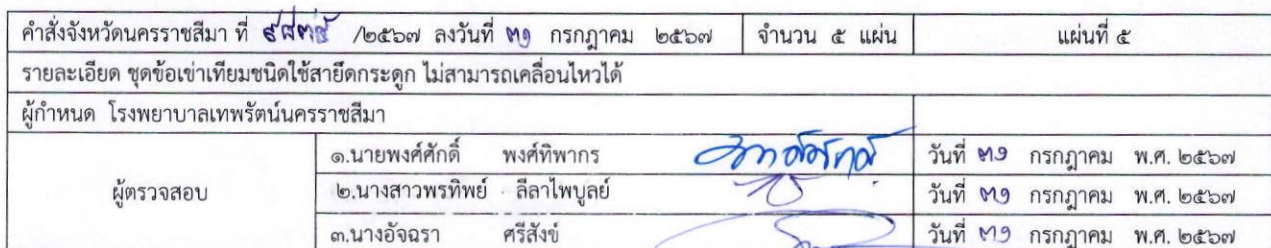 คำสั่งจังหวัดนครราชสีมา ที่ /๒๕๖๗ ลงวันที่ ๓๑ กรกฎาคม ๒๕๖๗ จำนวน ๕ แผ่น แผ่นที่ ๕
รายละเอียด ชุดข้อเข่าเทียมชนิดใช้สายยึดกระดูก ไม่สามารถเคลื่อนไหวได้
ผู้กำหนด โรงพยาบาลเทพรัตน์นครราชสีมา
ผู้ตรวจสอบ
๑.นายพงศ์ศักดิ์ พงศ์ทิพากร วันที่ ๓๑ กรกฎาคม พ.ศ. ๒๕๖๗
๒.นางสาวพรทิพย์ ลีลาไพบูลย์ วันที่ ๓๑ กรกฎาคม พ.ศ. ๒๕๖๗
๓.นางอัจฉรา ศรีสังข์ วันที่ ๓๑ กรกฎาคม พ.ศ. ๒๕๖๗